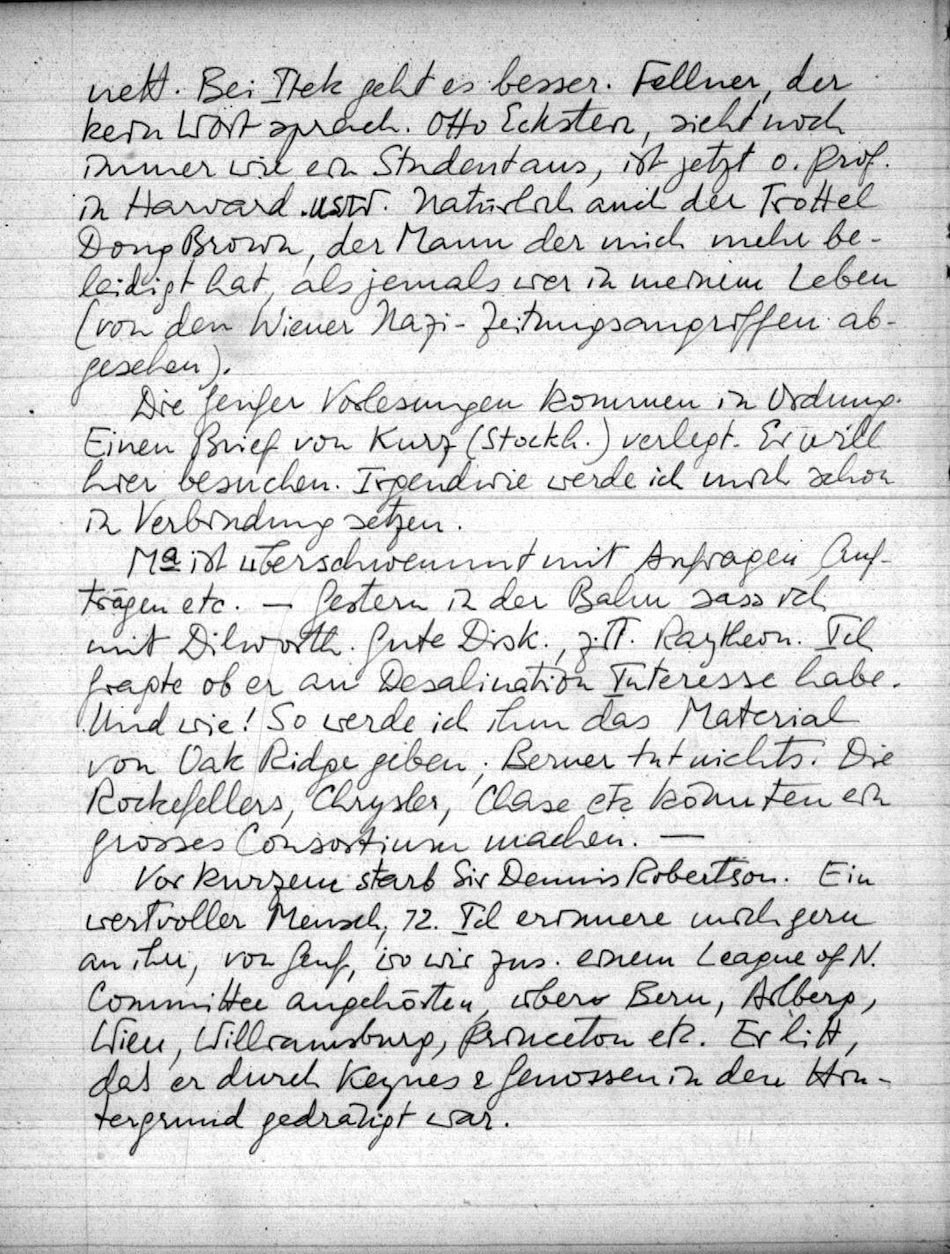 nett. Bei Itek geht es besser. Fellner, der
kein Wort sprach. Otto Eckstein, sieht noch
immer wie ein Student aus, ist jetzt o. Prof.
in Harvard usw. Natürlich auch der Trottel
Doug Brown, der Mann der mich mehr be-
leidigt hat, als jemals wer in meinem Leben
(von den Wiener Nazi-Zeitungsangriffen ab-
gesehen).
Die Genfer Vorlesungen kommen in Ordnung.
Einen Brief von Kurz (Stockh.) verlegt. Er will
hier besuchen. Irgendwie werde ich mich schon
in Verbindung setzen.
Ma ist überschwemmt mit Anfragen Auf-
trägen etc. — Gestern in der Bahn sass ich
mit Dilworth. Gute Disk., z.T. Raytheon. Ich
fragte ob er an Desalination Interesse habe.
Und wie! So werde ich ihm das Material
von Oak Ridge geben; Berner tut nichts. Die
Rockefellers, Chrysler, Chase etc könnten ein
grosses Consortium machen. —
Vor kurzem starb Sir Dennis Robertson. Ein
wertvoller Mensch, 72. Ich erinnere mich gern
an ihn, von Genf, wo wir zus. einem League of N.
Committee angehörten, über Bern, Arlberg,
Wien, Williamsburg, Princeton etc. Er litt,
das er durch Keynes & Genossen in den Hin-
tergrund gedrängt war.